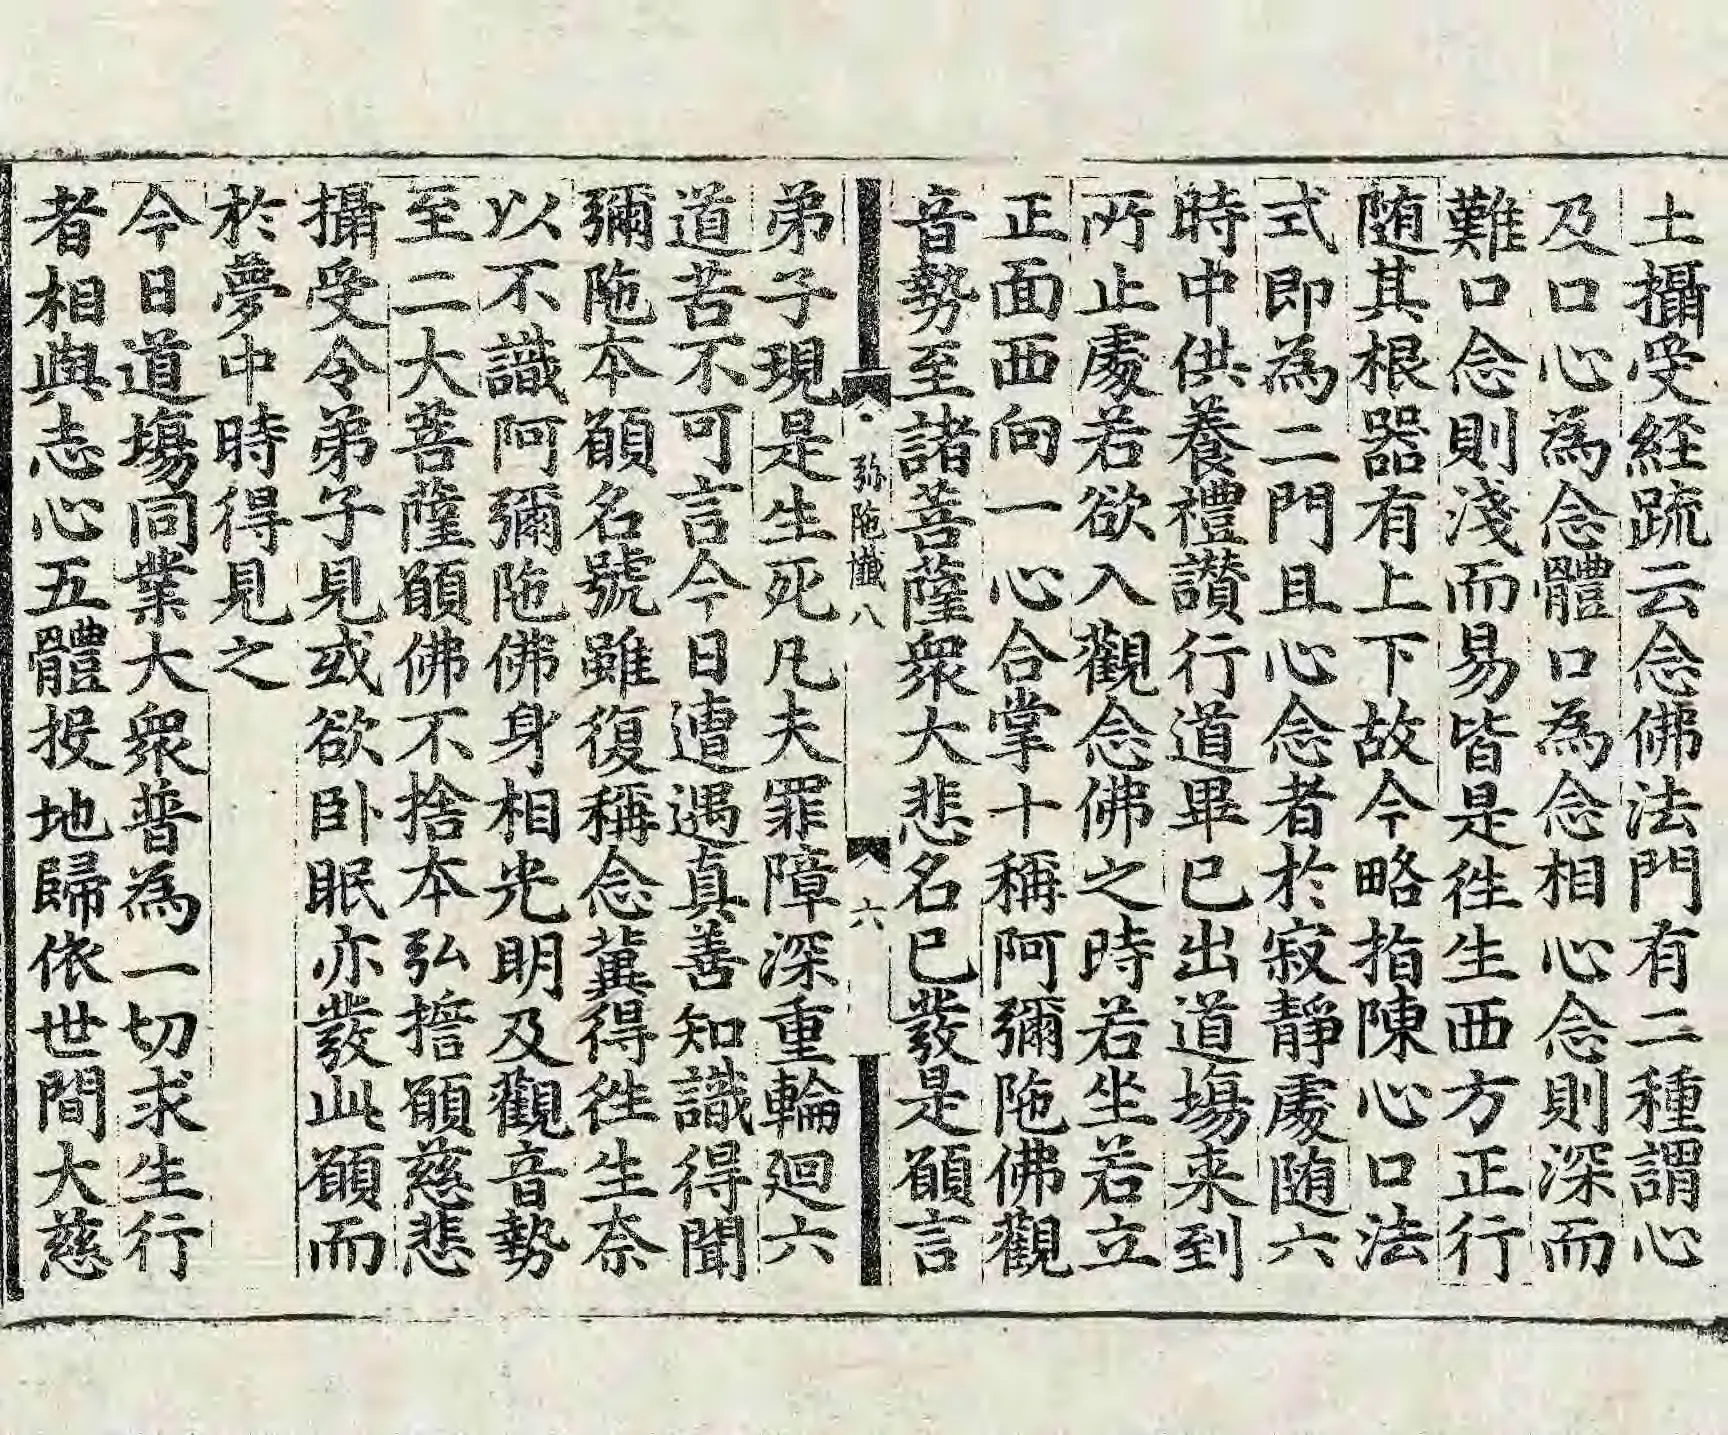 土攝受經疏云念佛法門有二種謂心
及口心為念體口為念相心念則深而
難口念則淺而易皆是徃生西方正行
随其根器有上下故今略指陳心口法
式即為二門且心念者於寂靜處随六
時中供養禮讃行道畢已出道塲来到
所止處若欲入觀念佛之時若坐若立
正面西向一心合掌十稱阿彌陁佛觀
音勢至諸菩薩衆大悲名已發是願言
弥陁懺八
六
弟子現是生死凡夫罪障深重輪廻六
道苦不可言今日遭遇真善知識得聞
彌陁本願名號雖復稱念冀得徃生奈
以不識阿彌陁佛身相光明及觀音勢
至二大菩薩願佛不捨本弘擔願慈悲
攝受令弟子見或欲卧眠亦發此願而
於夢中時得見之
今日道塲同業大衆普為一切求生行
者相與志心五體投地歸依世間大慈